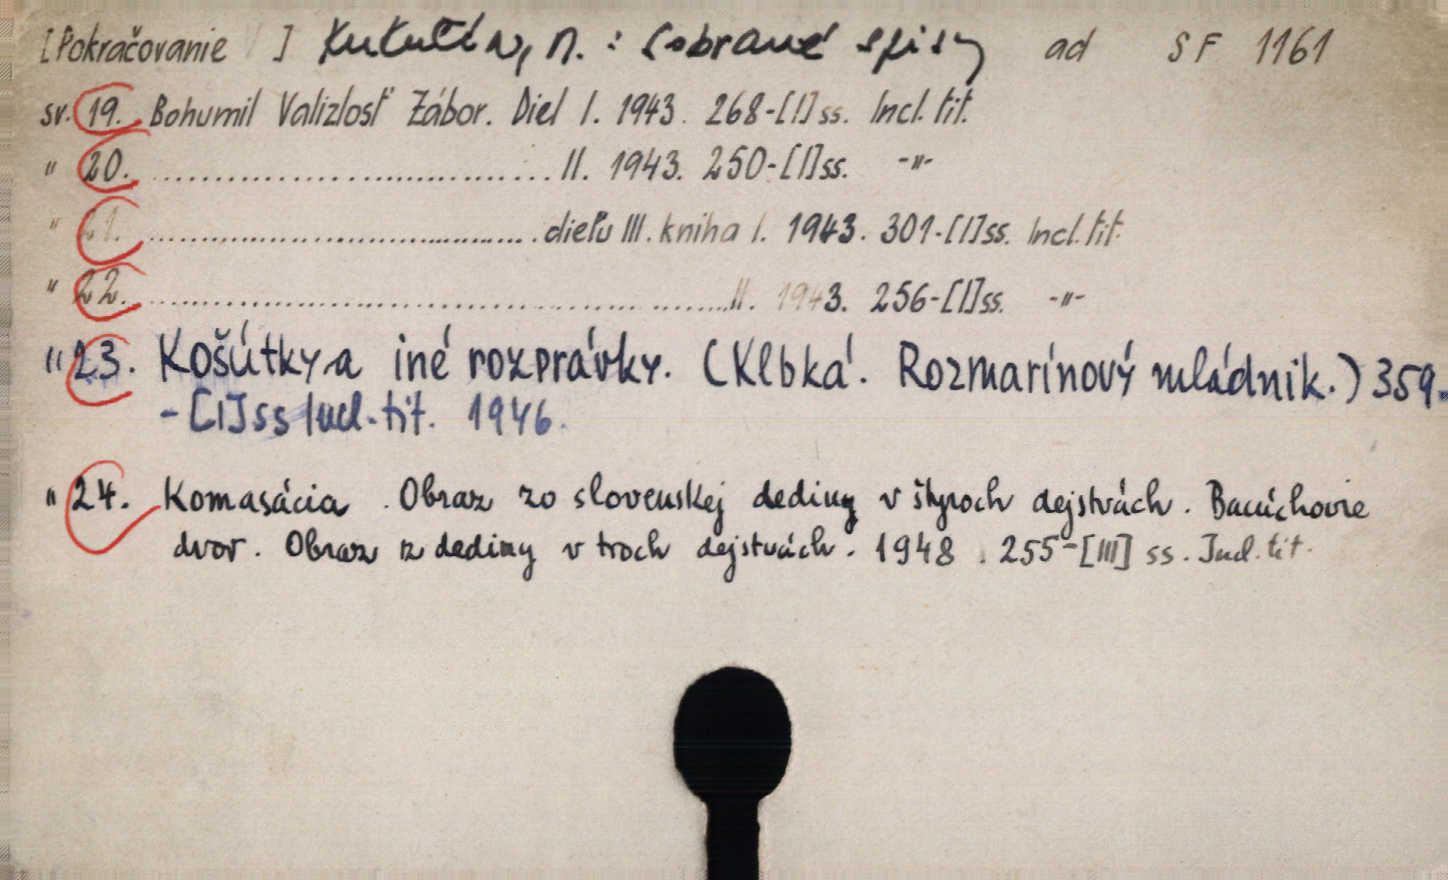 [Pokračovanie V ] Kukučín, M. : Sobrané spisy ad SF 1161
sv. 19. Bohumil Valizlosť Zábor. Diel I. 1943. 268-[I] ss. Incl. tit.
" 20. ................................ II. 1943. 250-[I] ss. -"-
" 21. ................................ dielu III. kniha I. 1943. 301-[I] ss. Incl. tit.
" 22. ................................ II. 1943. 256-[I] ss. -"-
" 23. Košútky a iné rozprávky. (Klbká. Rozmarínový mládnik.) 359.
-[I] ss Incl. tit. 1946.
" 24. Komasácia. Obraz zo slovenskej dediny v štyroch dejstvách. Bacúchovie
dvor. Obraz z dediny v troch dejstvách. 1948. 255-[III] ss. Incl. tit.